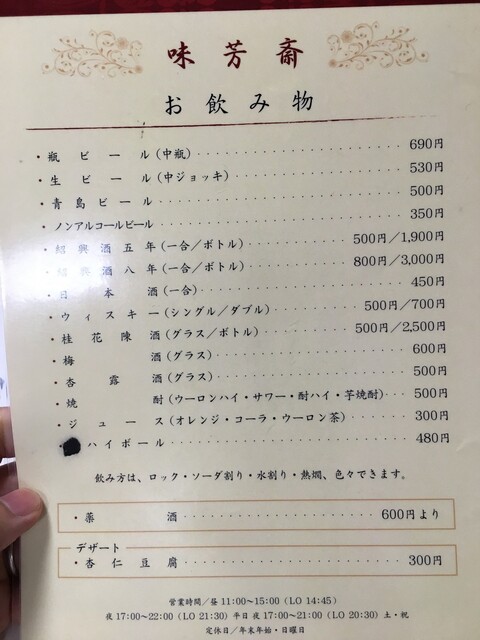 味芳斎
お飲み物
・瓶ビール(中瓶)‥‥‥‥‥‥690円
・生ビール(中ジョッキ)‥‥‥‥‥‥530円
・青島ビール‥‥‥‥‥‥500円
・ノンアルコールビール‥‥‥‥‥‥350円
・紹興酒五年(一合/ボトル)‥‥‥‥‥‥500円/1,900円
・紹興酒八年(一合/ボトル)‥‥‥‥‥‥800円/3,000円
・日本酒(一合)‥‥‥‥‥‥450円
・ウィスキー(シングル/ダブル)‥‥‥‥‥‥500円/700円
・桂花陳酒(グラス/ボトル)‥‥‥‥‥‥500円/2,500円
・梅酒(グラス)‥‥‥‥‥‥600円
・杏露酒(グラス)‥‥‥‥‥‥500円
・焼酎(ウーロンハイ・サワー・酎ハイ・芋焼酎)‥‥500円
・ジュース(オレンジ・コーラ・ウーロン茶)‥‥‥‥‥‥300円
ハイボール‥‥‥‥‥‥480円
飲み方は、ロック・ソーダ割り・水割り・熱燗、色々できます。
・薬酒‥‥‥‥‥‥600円より
デザート
・杏仁豆腐‥‥‥‥‥‥300円
営業時間/昼 11:00〜15:00 (LO 14:45)
夜 17:00〜22:00 (LO 21:30) 平日 夜 17:00〜21:00 (LO 20:30) 土・祝
定休日/年末年始・日曜日